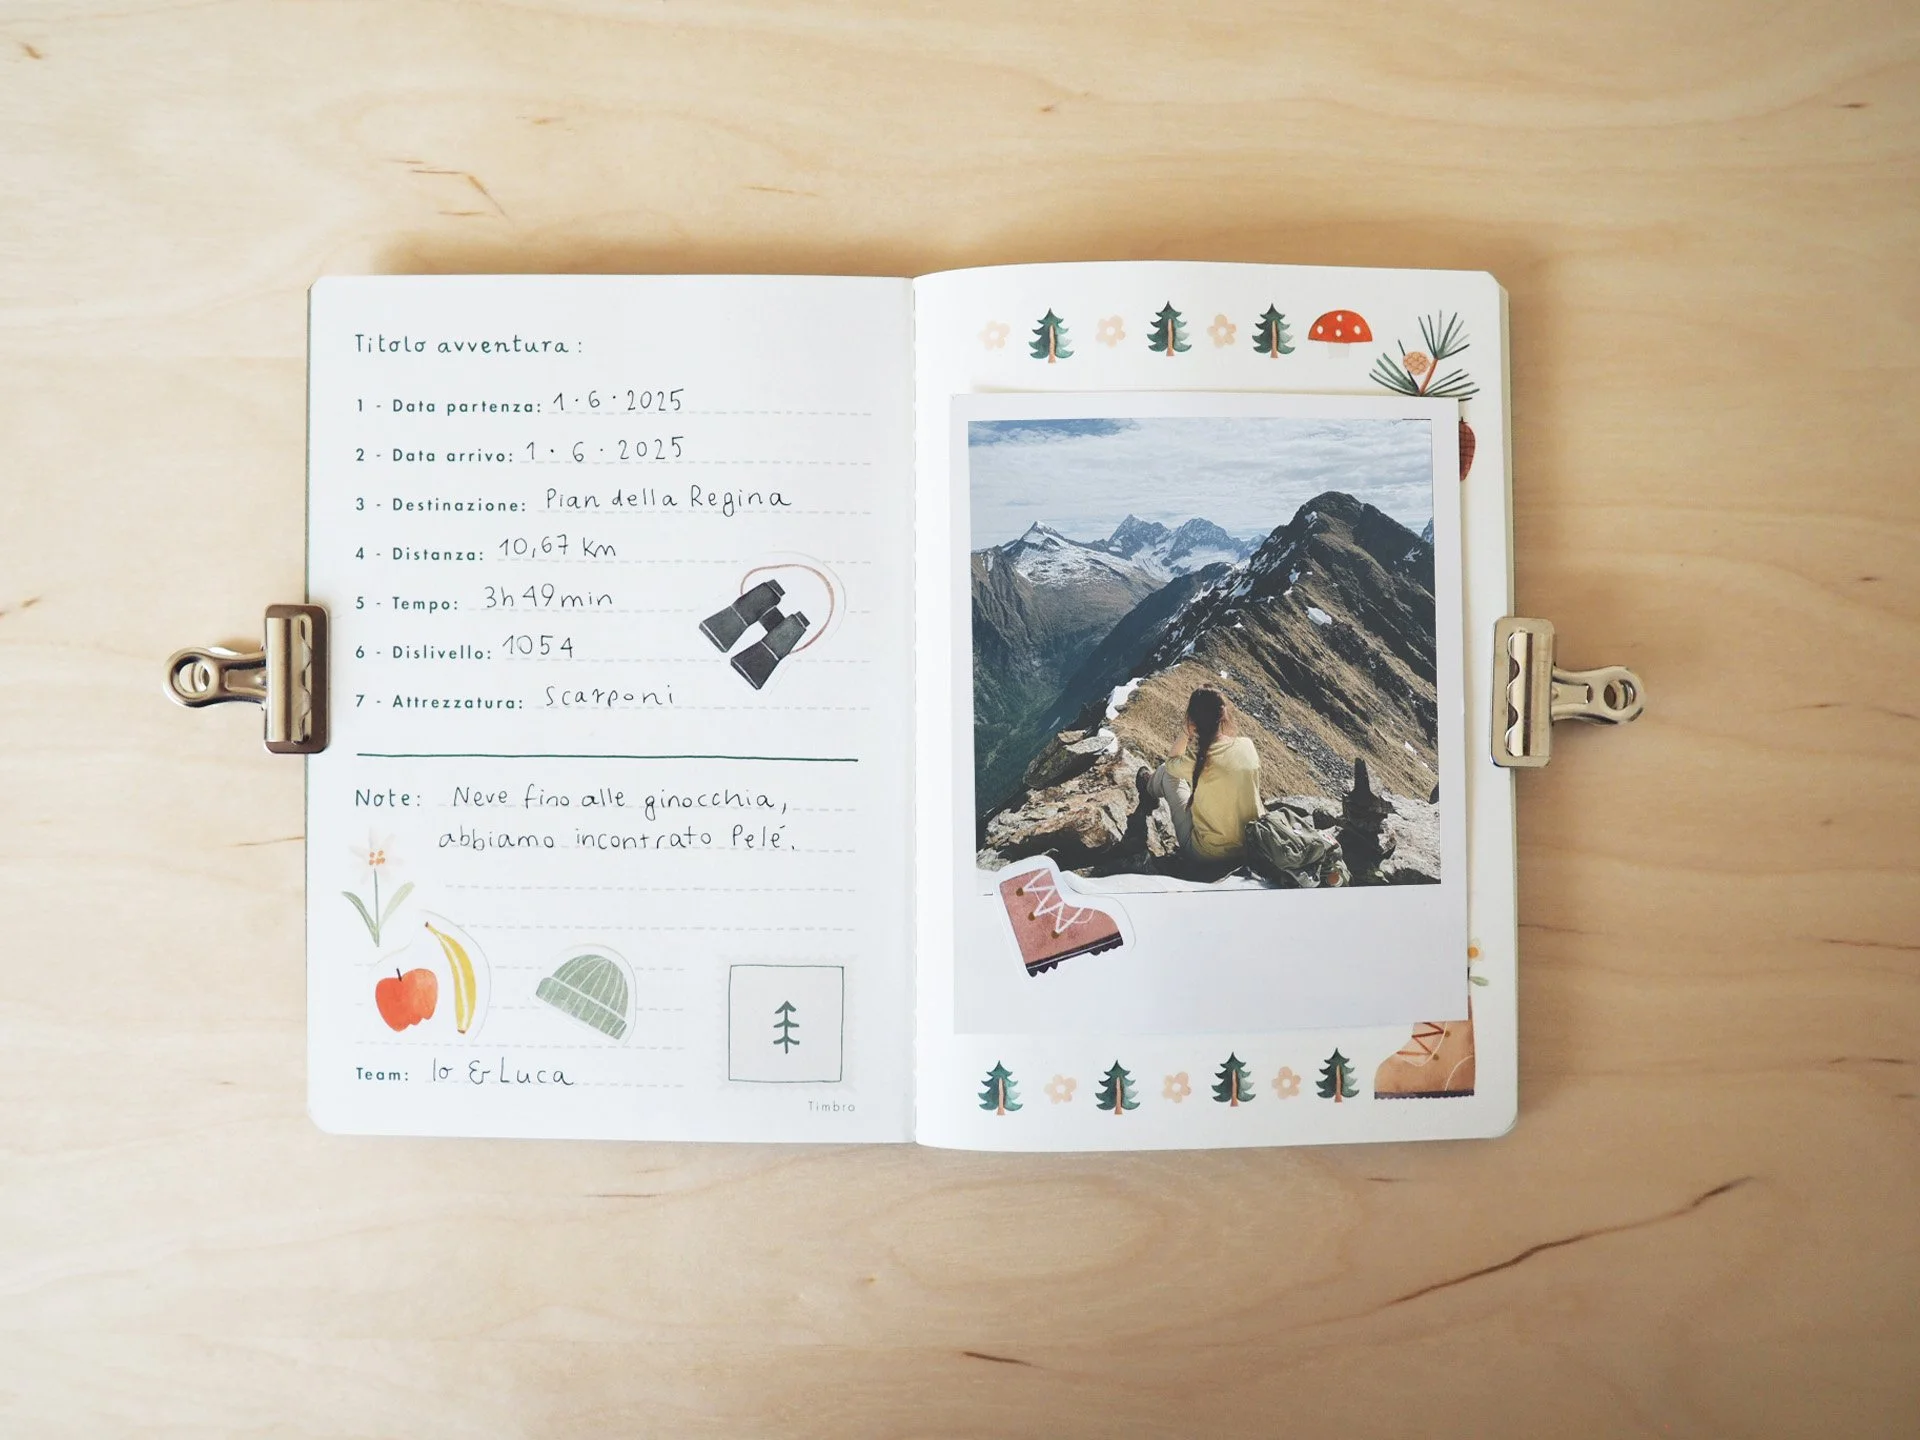 Titolo avventura:
1 - Data partenza: 1·6·2025
2 - Data arrivo: 1·6·2025
3 - Destinazione: Pian della Regina
4 - Distanza: 10,67 km
5 - Tempo: 3h 49min
6 - Dislivello: 1054
7 - Attrezzatura: Scarponi
Note: Neve fino alle ginocchia,
abbiamo incontrato Pelé.
Team: Io & Luca
Timbro